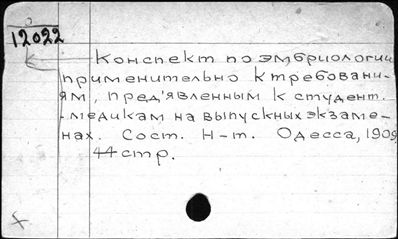 12022
Конспект по эмбриологии
применительно к требовани-
ям, пред'явленным к студент.
-медикам на выпускных экзаме-
нах. Сост. Н-т. Одесса, 1909,
44 стр.